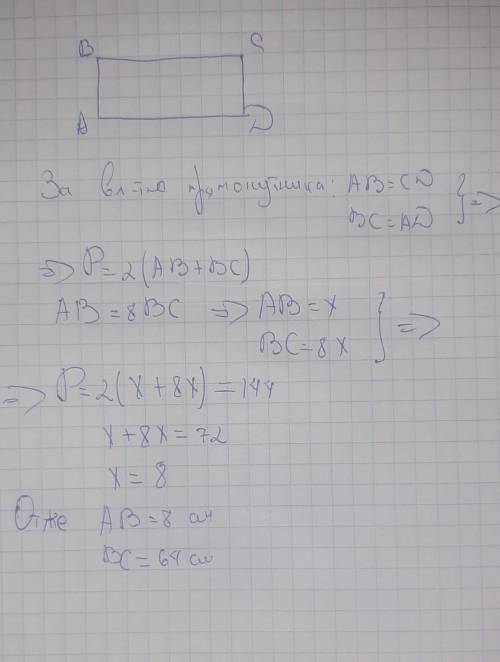 B C
A D
За вл-тю прямокутника: AB=CD
BC=AD } =>
=> P=2(AB+BC)
AB=8BC => AB=x
BC=8x } =>
=> P=2(x+8x)=144
x+8x=72
x=8
Отже AB=8 см
BC=64 см